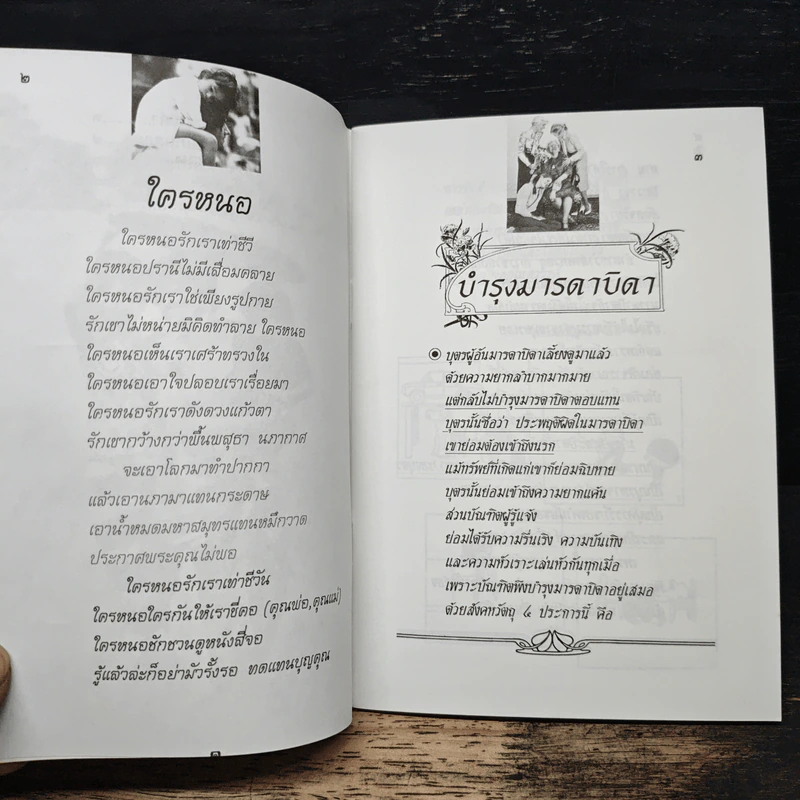 ๒
ใครหนอ
ใครหนอรักเราเท่าชีวี
ใครหนอปรานีไม่มีเสื่อมคลาย
ใครหนอรักเราใช่เพียงรูปกาย
รักเขาไม่หน่ายมิคิดทำลาย ใครหนอ
ใครหนอเห็นเราเศร้าทรวงใน
ใครหนอเอาใจปลอบเราเรื่อยมา
ใครหนอรักเราดังดวงแก้วตา
รักเขากว้างกว่าพื้นพสุธา นภากาศ
จะเอาโลกมาทำปากกา
แล้วเอานภามาแทนกระดาษ
เอาน้ำหมดมหาสมุทรแทนหมึกวาด
ประกาศพระคุณไม่พอ
ใครหนอรักเราเท่าชีวัน
ใครหนอใครกันให้เราขี่คอ (คุณพ่อ,คุณแม่)
ใครหนอชักชวนดูหนังสี่จอ
รู้แล้วล่ะก็อย่ามัวรั้งรอ ทดแทนบุญคุณ
๓
บำรุงมารดาบิดา
บุตรผู้อันมารดาบิดาเลี้ยงดูมาแล้ว
ด้วยความยากลำบากมากมาย
แต่กลับไม่บำรุงมารดาบิดาตอบแทน
บุตรนั้นชื่อว่า ประพฤติผิดในมารดาบิดา
เขาย่อมต้องเข้าถึงนรก
แม้ทรัพย์ที่เกิดแก่เขาก็ย่อมฉิบหาย
บุตรนั้นย่อมเข้าถึงความยากแค้น
ส่วนบัณฑิตผู้รู้แจ้ง
ย่อมได้รับความรื่นเริง ความบันเทิง
และความหัวเราะเล่นหัวกันทุกเมื่อ
เพราะบัณฑิตพึงบำรุงมารดาบิดาอยู่เสมอ
ด้วยสังคหวัตถุ ๔ ประการนี้ คือ